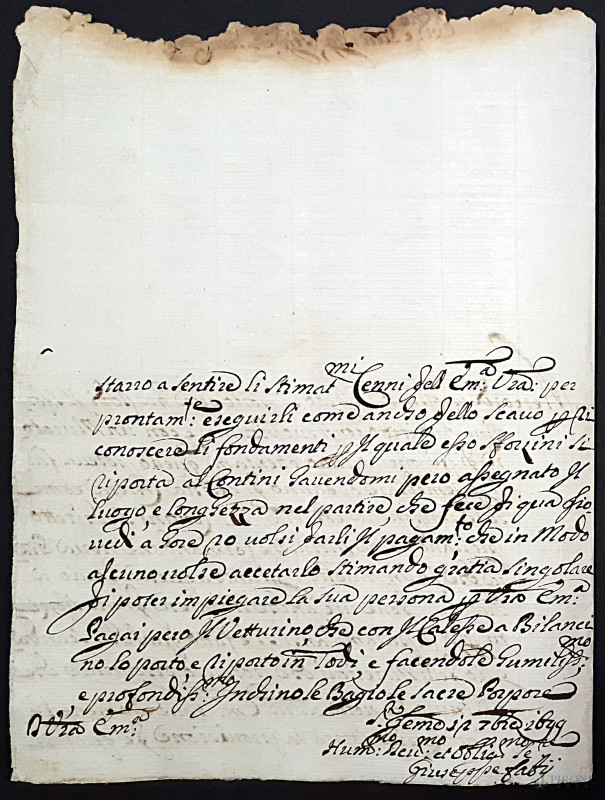 starro a sentire li stimat.mi Cenni dell Em.a Vra: per
prontam.te: eseguirli come ancho dello scavo p ri
conoscere li fondamenti p Il quale esso Sforzini si
riporta al Contini havendomi pero assegnato Il
luogo e longhezza nel partire che fece di qua gio
vedi a hore 20 volsi darli Il pagam.to: che in Modo
alcuno volse accetarlo stimando gratia singolare
di poter impiegare la sua persona p Vra Em.a
Pagai pero Il Vetturino che con Il Calesse a Bilanci
no lo porto e riporto in Todi e facendole humiliss.mo
e profondiss.mo Inchino le Bagio le sacre Porpore
D Vra Em.a
S. Gemo 12 7bre 1699
Hum.mo Dev.mo et oblig.mo se.re
Giuseppe